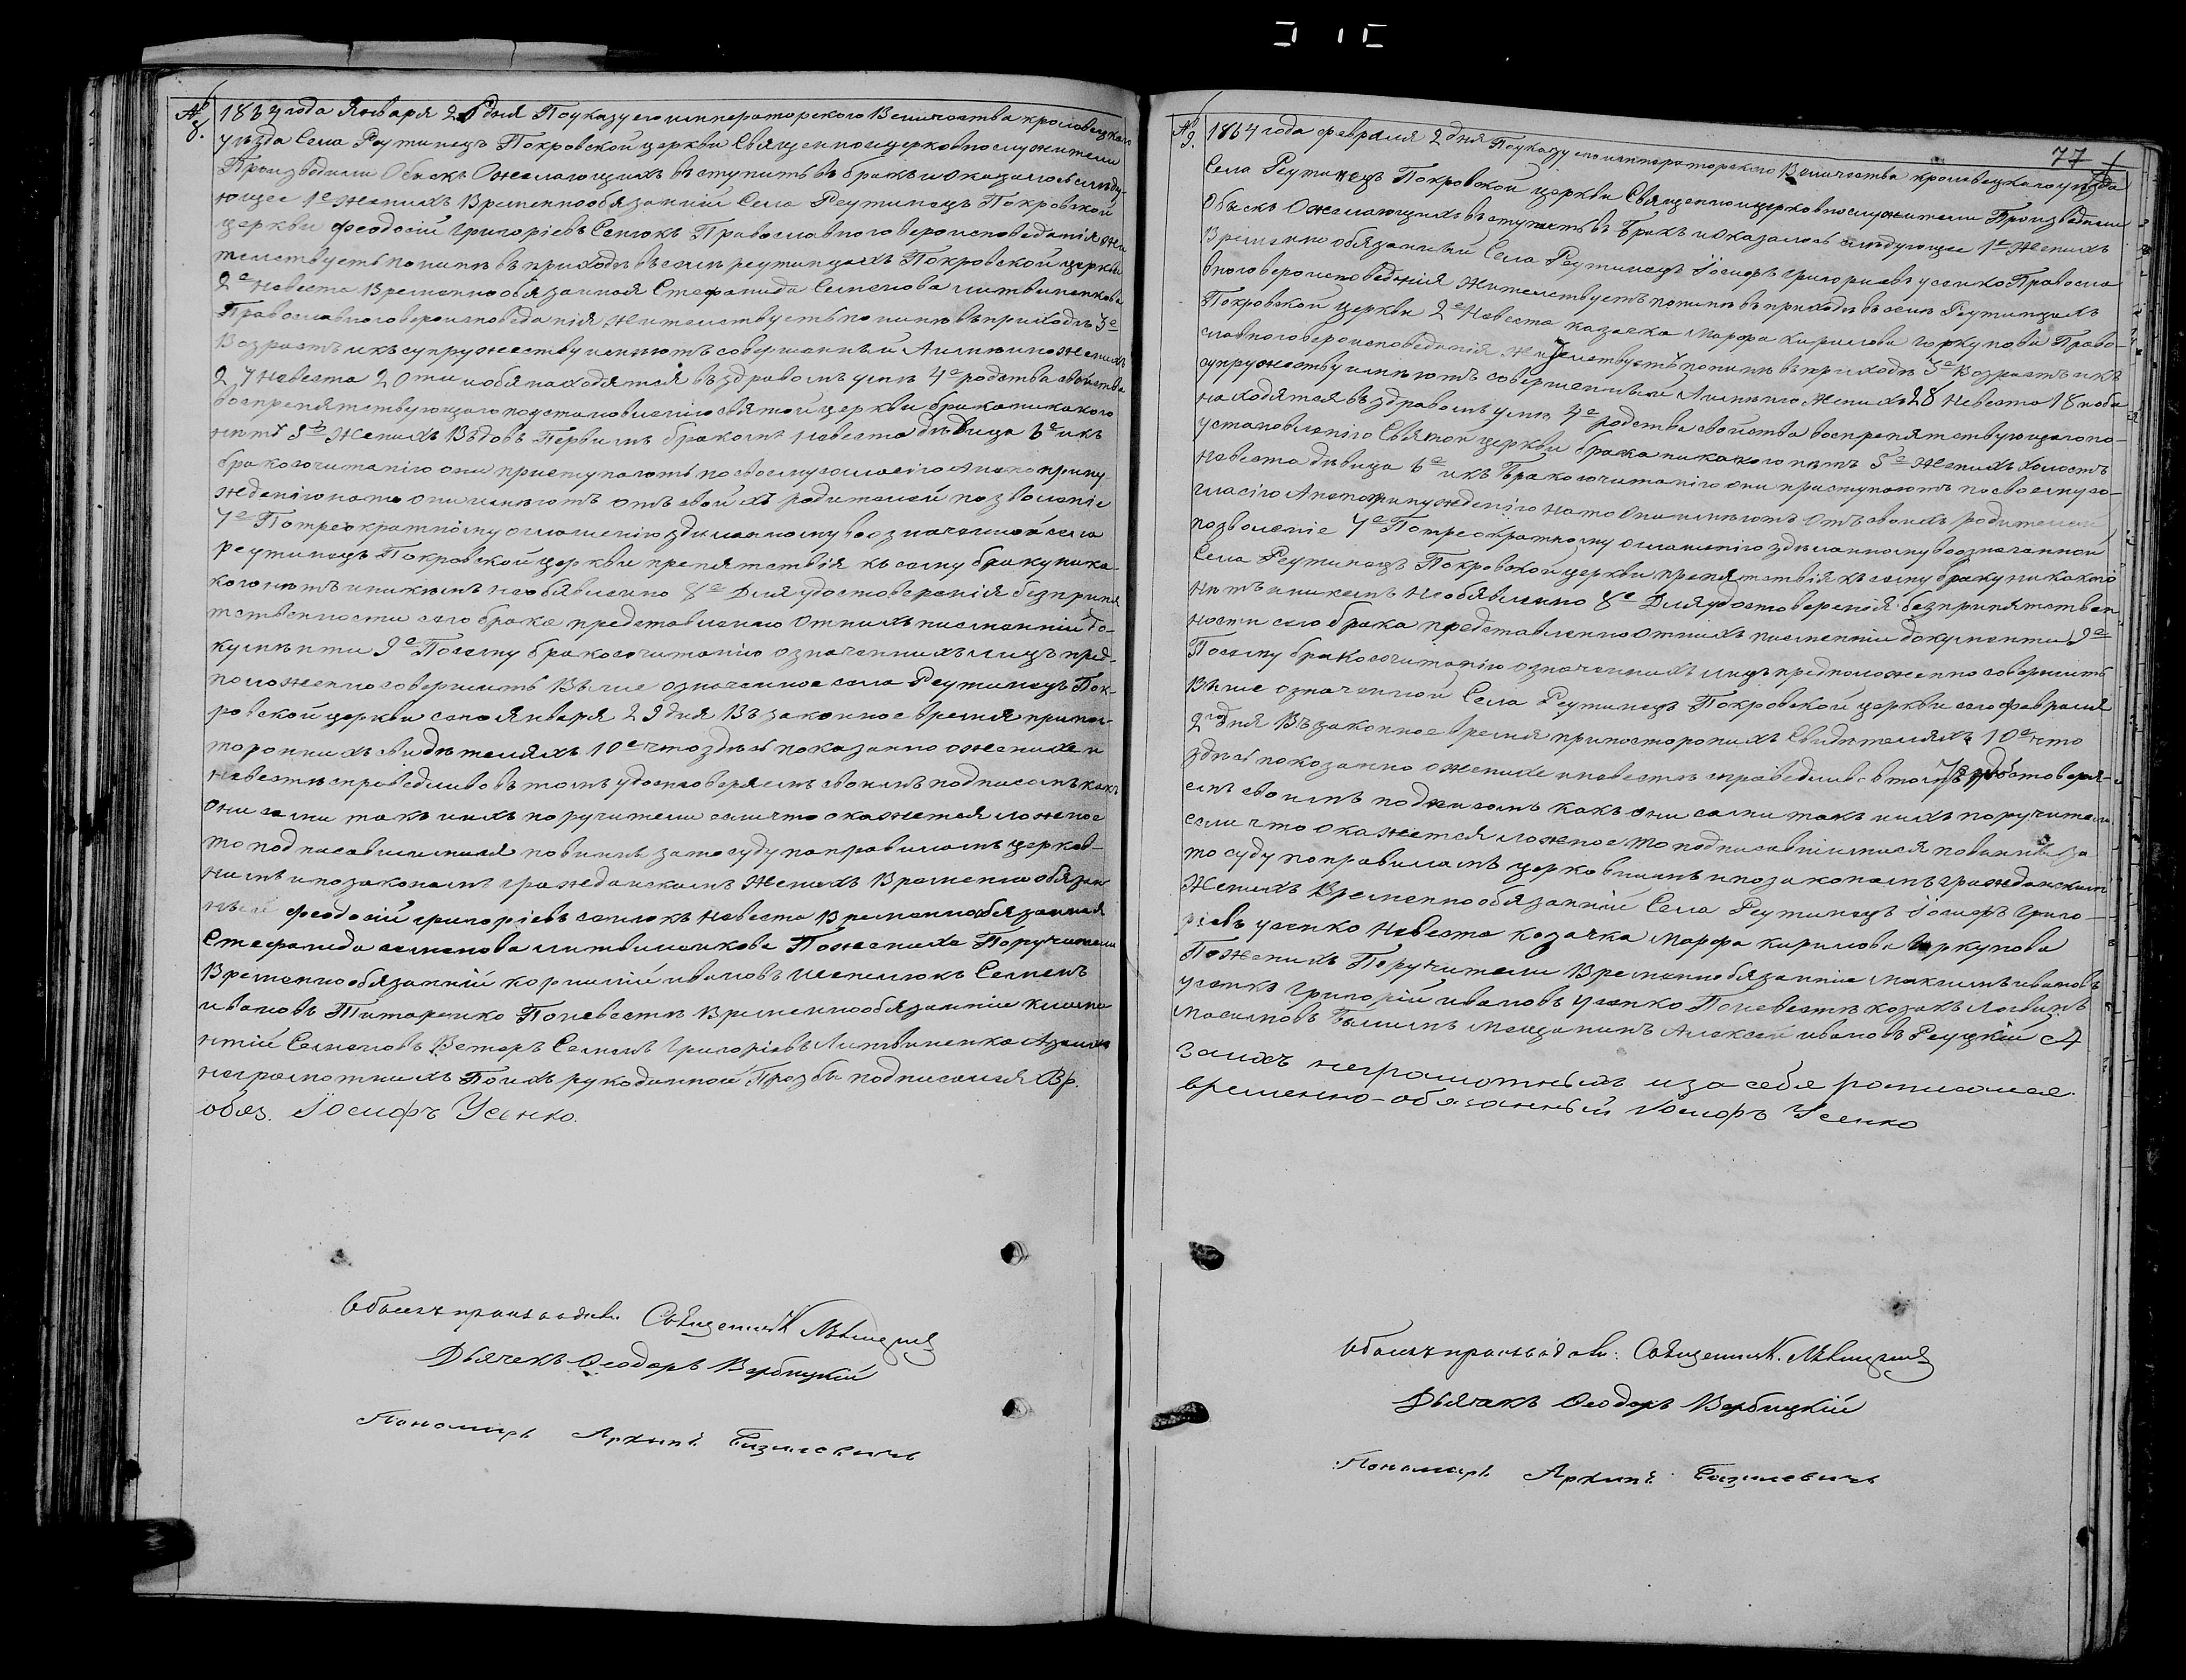 № 8.
1864 года Января 26 дня По указу его императорского Величества кролевецкаго
уѣзда Села Реутинецъ Покровской церкви Священноицерковнослужители
Произведили Обыскъ Ожелающихъ вступить въ бракъ и оказалось слѣду-
ющее 1е Женихъ Временнообязанній Села Реутинецъ Покровской
церкви Феодосій Григоріевъ Сенюкъ Православного вероисповеданія жи
телствуетъ понинѣ въ приходѣ въ селѣ реутинцахъ Покровской церкви
2е Невеста Временнообязанная Стефанида Семенова литвиненкова
Православного вероисповеданія жителствуетъ понинѣ въ приходѣ 3е
Возрастъ ихъ супружеству имѣютъ совершенный А именно женихъ
24 невеста 20 ти и оба находятся въ здравомъ умѣ 4е родства свойства
воспрепятствующаго поустановленію святой церкви брака никакого
нѣтъ 5е Женихъ Вдовъ Первимъ бракомъ невеста дѣвица 6е ихъ
бракосочитанію они приступаютъ по своему согласію А не по прину-
ждению на то они имѣютъ отъ своихъ родителей позволеніе
7е По треократному оглашенію зделанному во означенной села
реутинецъ Покровской церкви препятствія къ сему браку ника-
кого нѣтъ и никемъ необявлено 8е Для удостоверенія безпрепя
тственности сего брака представленно отнихъ писменніи до-
кументи 9е По сему бракосочитанію означенихъ лицъ пред-
положенно совершить Выше означенное села Реутинецъ Пок-
ровской церкви сего Января 29 дня Въ законное время при пос-
торонних свидѣтеляхъ 10е что здѣсь показанно о женихе и
невестѣ справедливо въ томъ удостоверяемъ своимъ подписомъ какъ
Они сами такъ и ихъ поручители если что окажется ложное
то подписавшиися повинны зато суду по правиламъ церков-
нимъ и по законамъ гражданскимъ Женихъ Временнообязан
ный феодосій григоріевъ сенюкъ невеста Временнообязанная
Стефанида семенова литвиненкова По женихе Поручители
Временнообязанній корнилій ивановъ Семенъ
ивановъ Титаренко По невестѣ Временнообязанніе
Семеновъ Семенъ Григоріевъ Литвиненко А за ихъ
неграмотнихъ По ихъ рукоданной Прозбѣ подписался Вр.
обяз. Іосифъ Усенко.
Обыскъ производили: Священникъ
Дьячекъ Ѳеодоръ Вербицкій
Пономарь Архипъ Базилевичъ
77
№ 9.
1864 года февраля 2 дня По указу его императорского Величества кролевецкаго уѣзда
Села Реутинецъ Покровской церкви Священноицерковнослужители Произведили
Обыскъ Ожелающихъ вступить въ Бракъ и оказалось следующее 1е Женихъ
Временнообязанный Села Реутинецъ Іосифъ григориевъ усенко Правосла
вного вероисповедания Жителствуетъ понинѣ въ приходѣ въ селѣ Реутинцахъ
Покровской церкви 2е Невеста казачка Марфа Кирилова Право-
славного вероисповеданія жителствуетъ понинѣ въ приходѣ 3е Возрастъ ихъ
супружеству имѣютъ совершенный А именно Женихъ 28 Невеста 18 и оба
находятся въ здравомъ умѣ 4е родства свойства воспрепятствующаго по-
установленію Святой церкви брака никакого нѣтъ 5е Женихъ холостъ
невеста дѣвица 6е ихъ Бракосочитанію они приступаютъ по своему со-
гласію А не по принуждению на то Они имѣютъ Отъ своихъ родителей
позволеніе 7е По треократному оглашенію здѣланному во означенной
Села Реутинецъ Покровской церкви препятствія къ сему браку никакого
нѣтъ и никемъ Необявлено 8е Для удостовереніа безприпятствен
ности сего брака представленно отнихъ писменніи документи 9е
По сему бракосочитанію означенихъ лицъ предположенно совершить
Выше означенной Села Реутинецъ Покровской церкви сего февраля
2го дня Въ законное время при посторонихъ Свидѣтеляхъ 10е что
здѣсь показанно о женихе и невестѣ справедливо в томъ удостоверя-
емъ своимъ подписомъ какъ они сами такъ и ихъ поручители
если что окажется ложное то подписавшиися повинны за
то суду по правиламъ церковнимъ и по законамъ гражданскимъ
Женихъ Временнообязанній Села Реутинецъ Іосифъ григо-
ріевъ усенко Невеста казачка марфа кирилова
По женихѣ Поручители Временнообязанніе Максимъ ивановъ
усенко Григорій ивановъ Усенко По невестѣ козакъ
Мещанинъ Алексей ивановъ Реуцкій А
за ихъ неграмотныхъ и за себя росписался
временно-обязанный Іосифъ Усенко
Обыскъ производили: Священникъ
Дьячекъ Ѳеодоръ Вербицкій
Пономарь Архипъ Базилевичъ